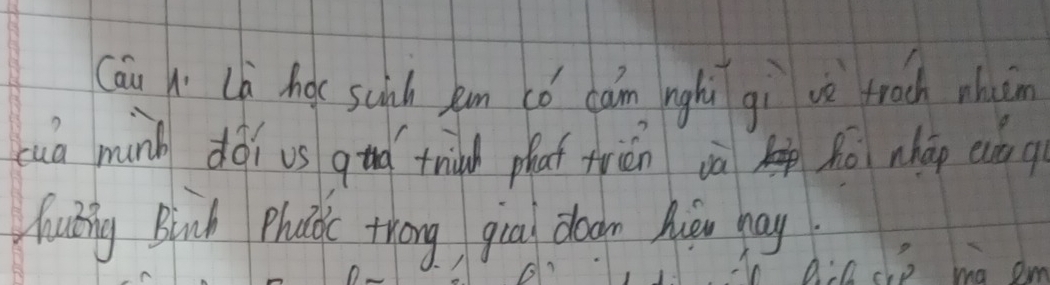 Câu 1. Là học sinh em có cảm nghĩ gì về trách nhiệm
của mình đối vs quá trình phát triển và hội nhập của qu
hương Bình Phước trong giai đoạn hiện nay.
mà em